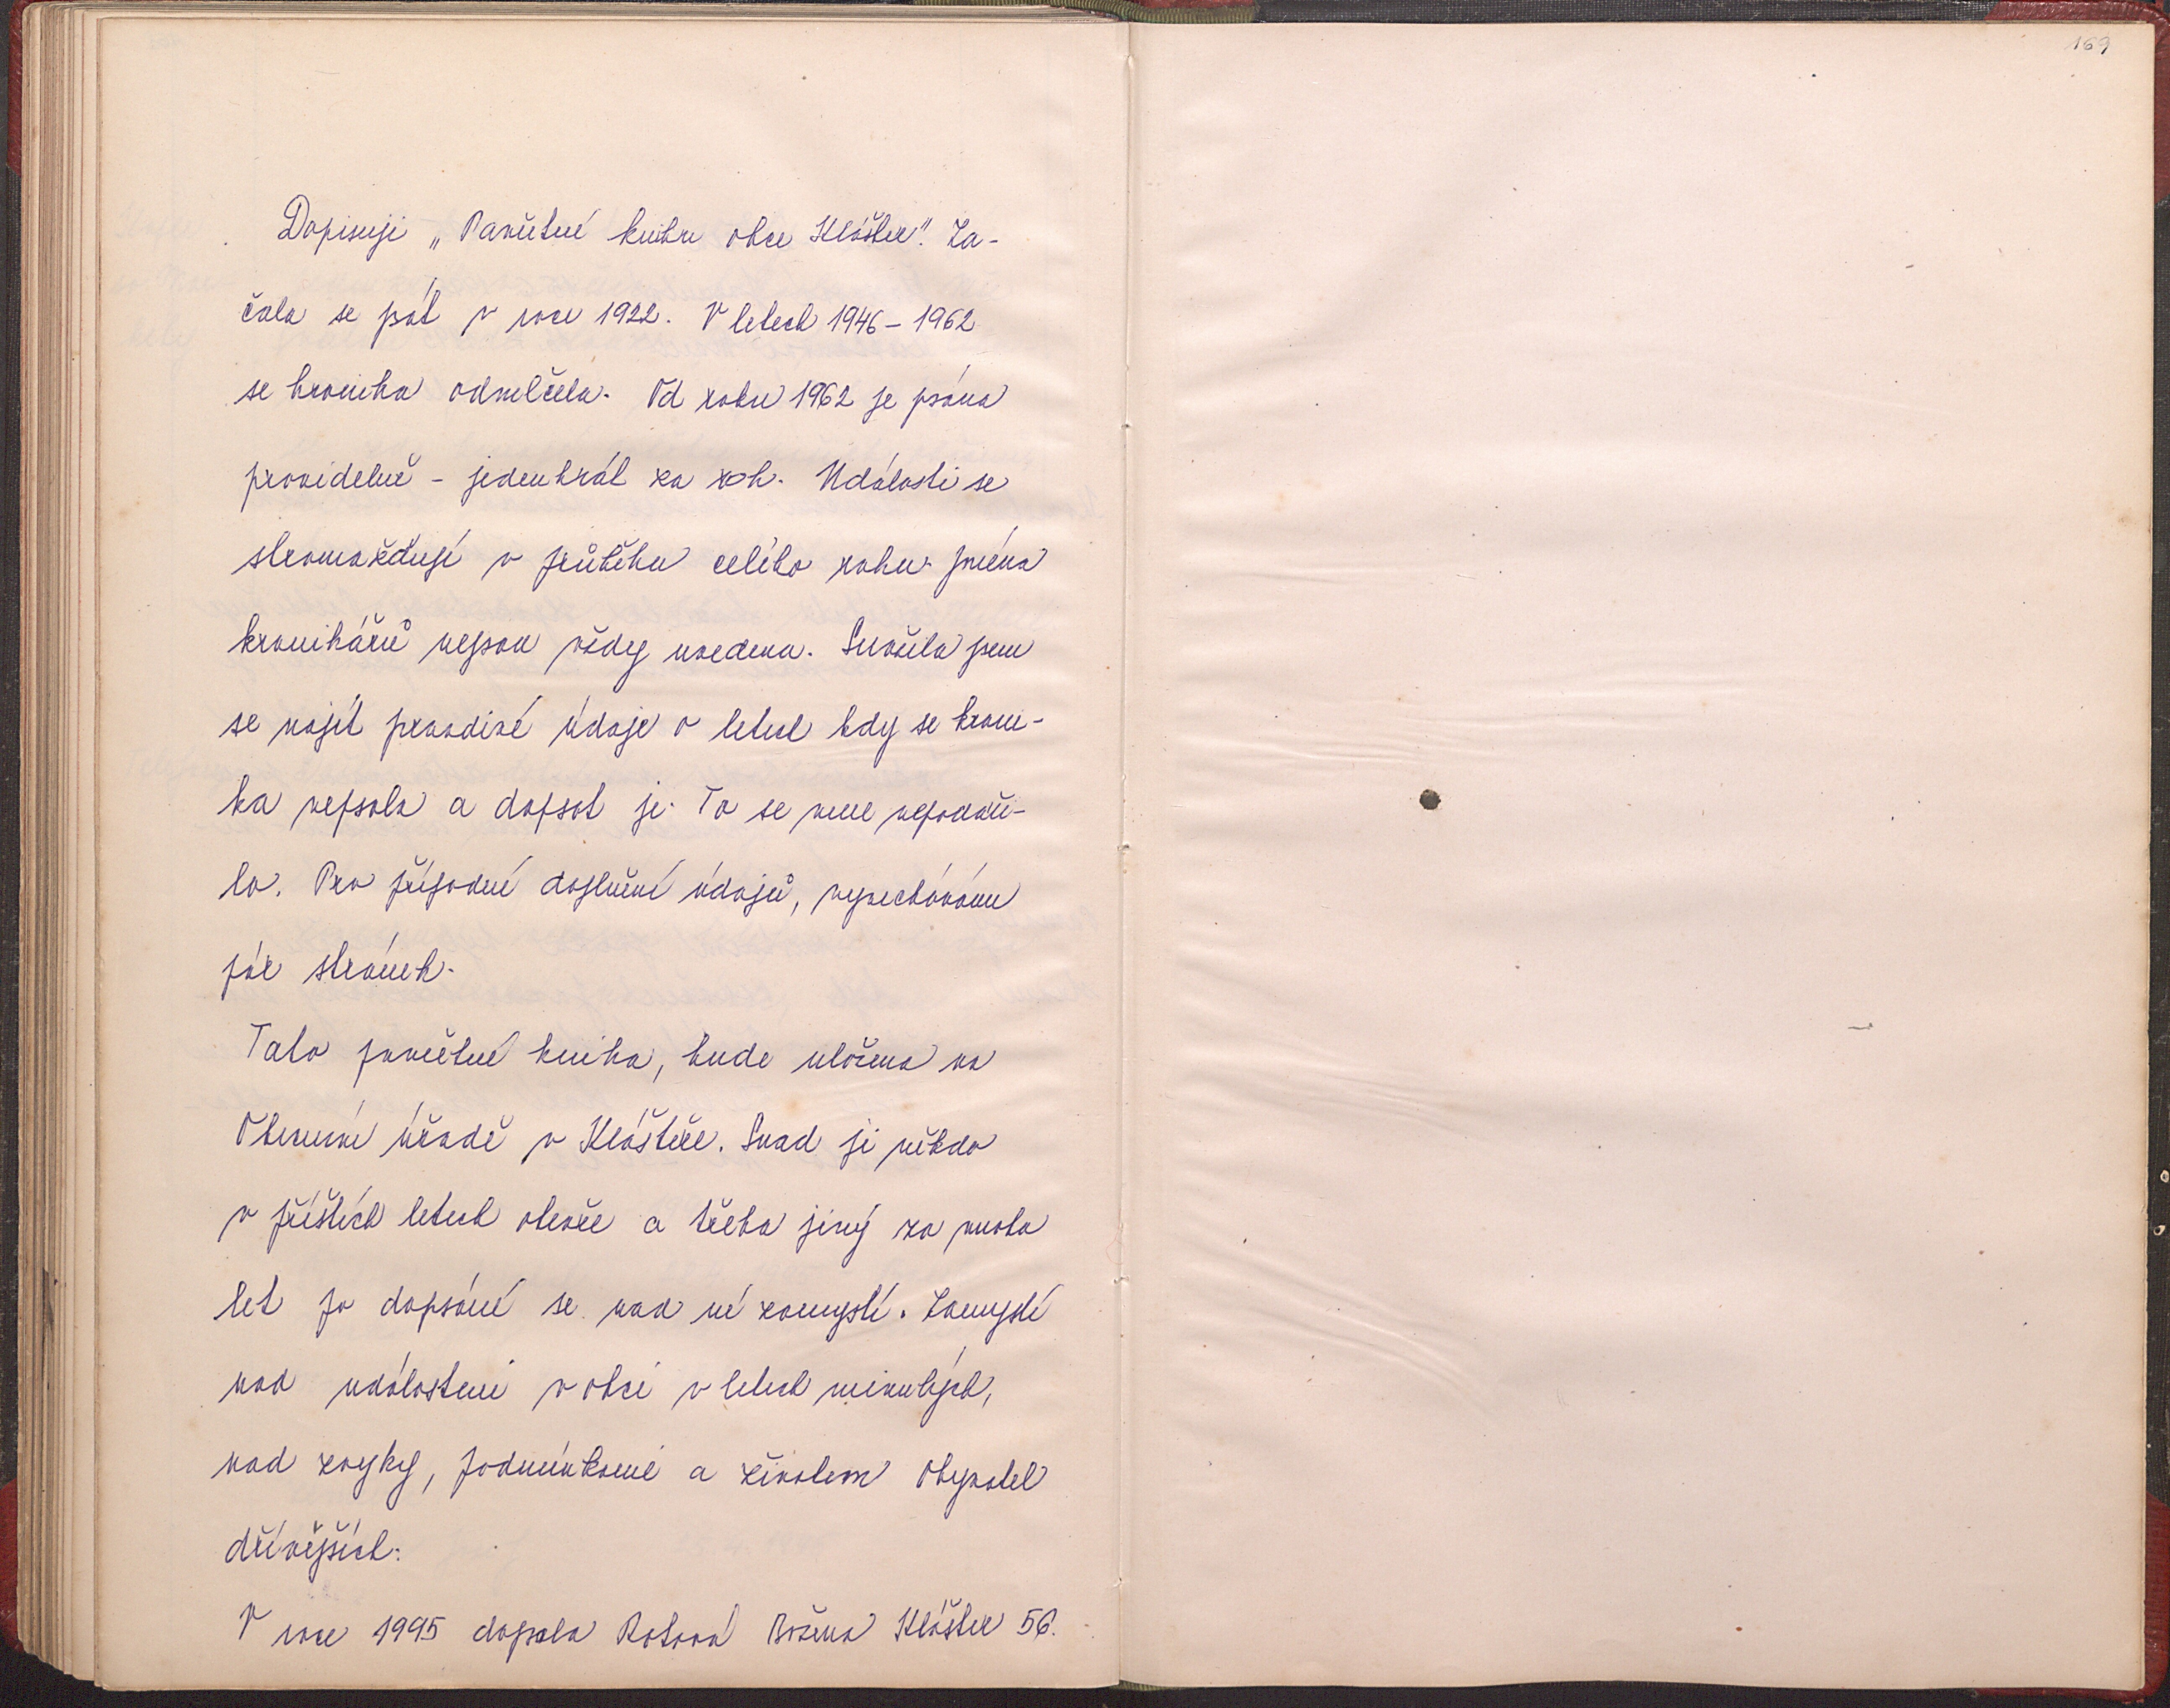 169
Dopisuji „Pamětní knihu obce Klášter". Za-
čala se psát v roce 1922. V letech 1946 - 1962
se kronika odmlčela. Od roku 1962 je psána
pravidelně - jedenkrát za rok. Události se
shromažďují v průběhu celého roku. Jména
kronikářů nejsou vždy uvedena. Snažila jsem
se najít pravdivé údaje o letech kdy se kroni-
ka nepsala a dopsat je. To se mne nepodaři-
lo. Pro případné doplnění údajů, vynechávám
pár stránek.
Tato pamětní kniha, bude uložena na
Obecním úřadě v Klášteře. Snad ji někdo
v příštích letech otevře a třeba jiný za mnoho
let po dopsání se nad ní zamyslí. Zamyslí
nad událostmi v obci v letech minulých,
nad zvyky, podmínkami a životem obyvatel
dřívějších.
V roce 1995 dopsala Božena Klášter 56.